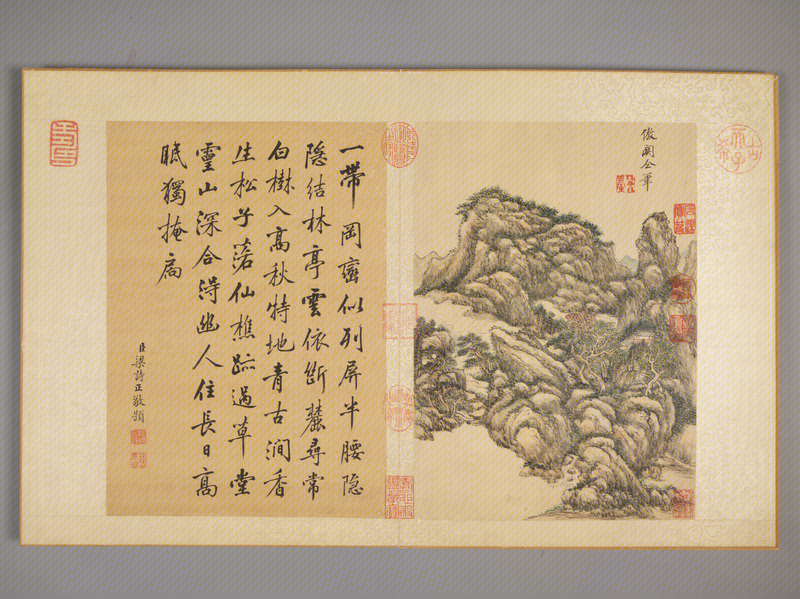 倣関仝筆
一帶岡巒似列屏半腰隐
隐結林亭雲依斷麓尋常
白樹入高秋特地青古澗香
生松子落仙樵跡過草堂
靈山深合得幽人住長日高
眠獨掩扃
臣梁詩正敬題